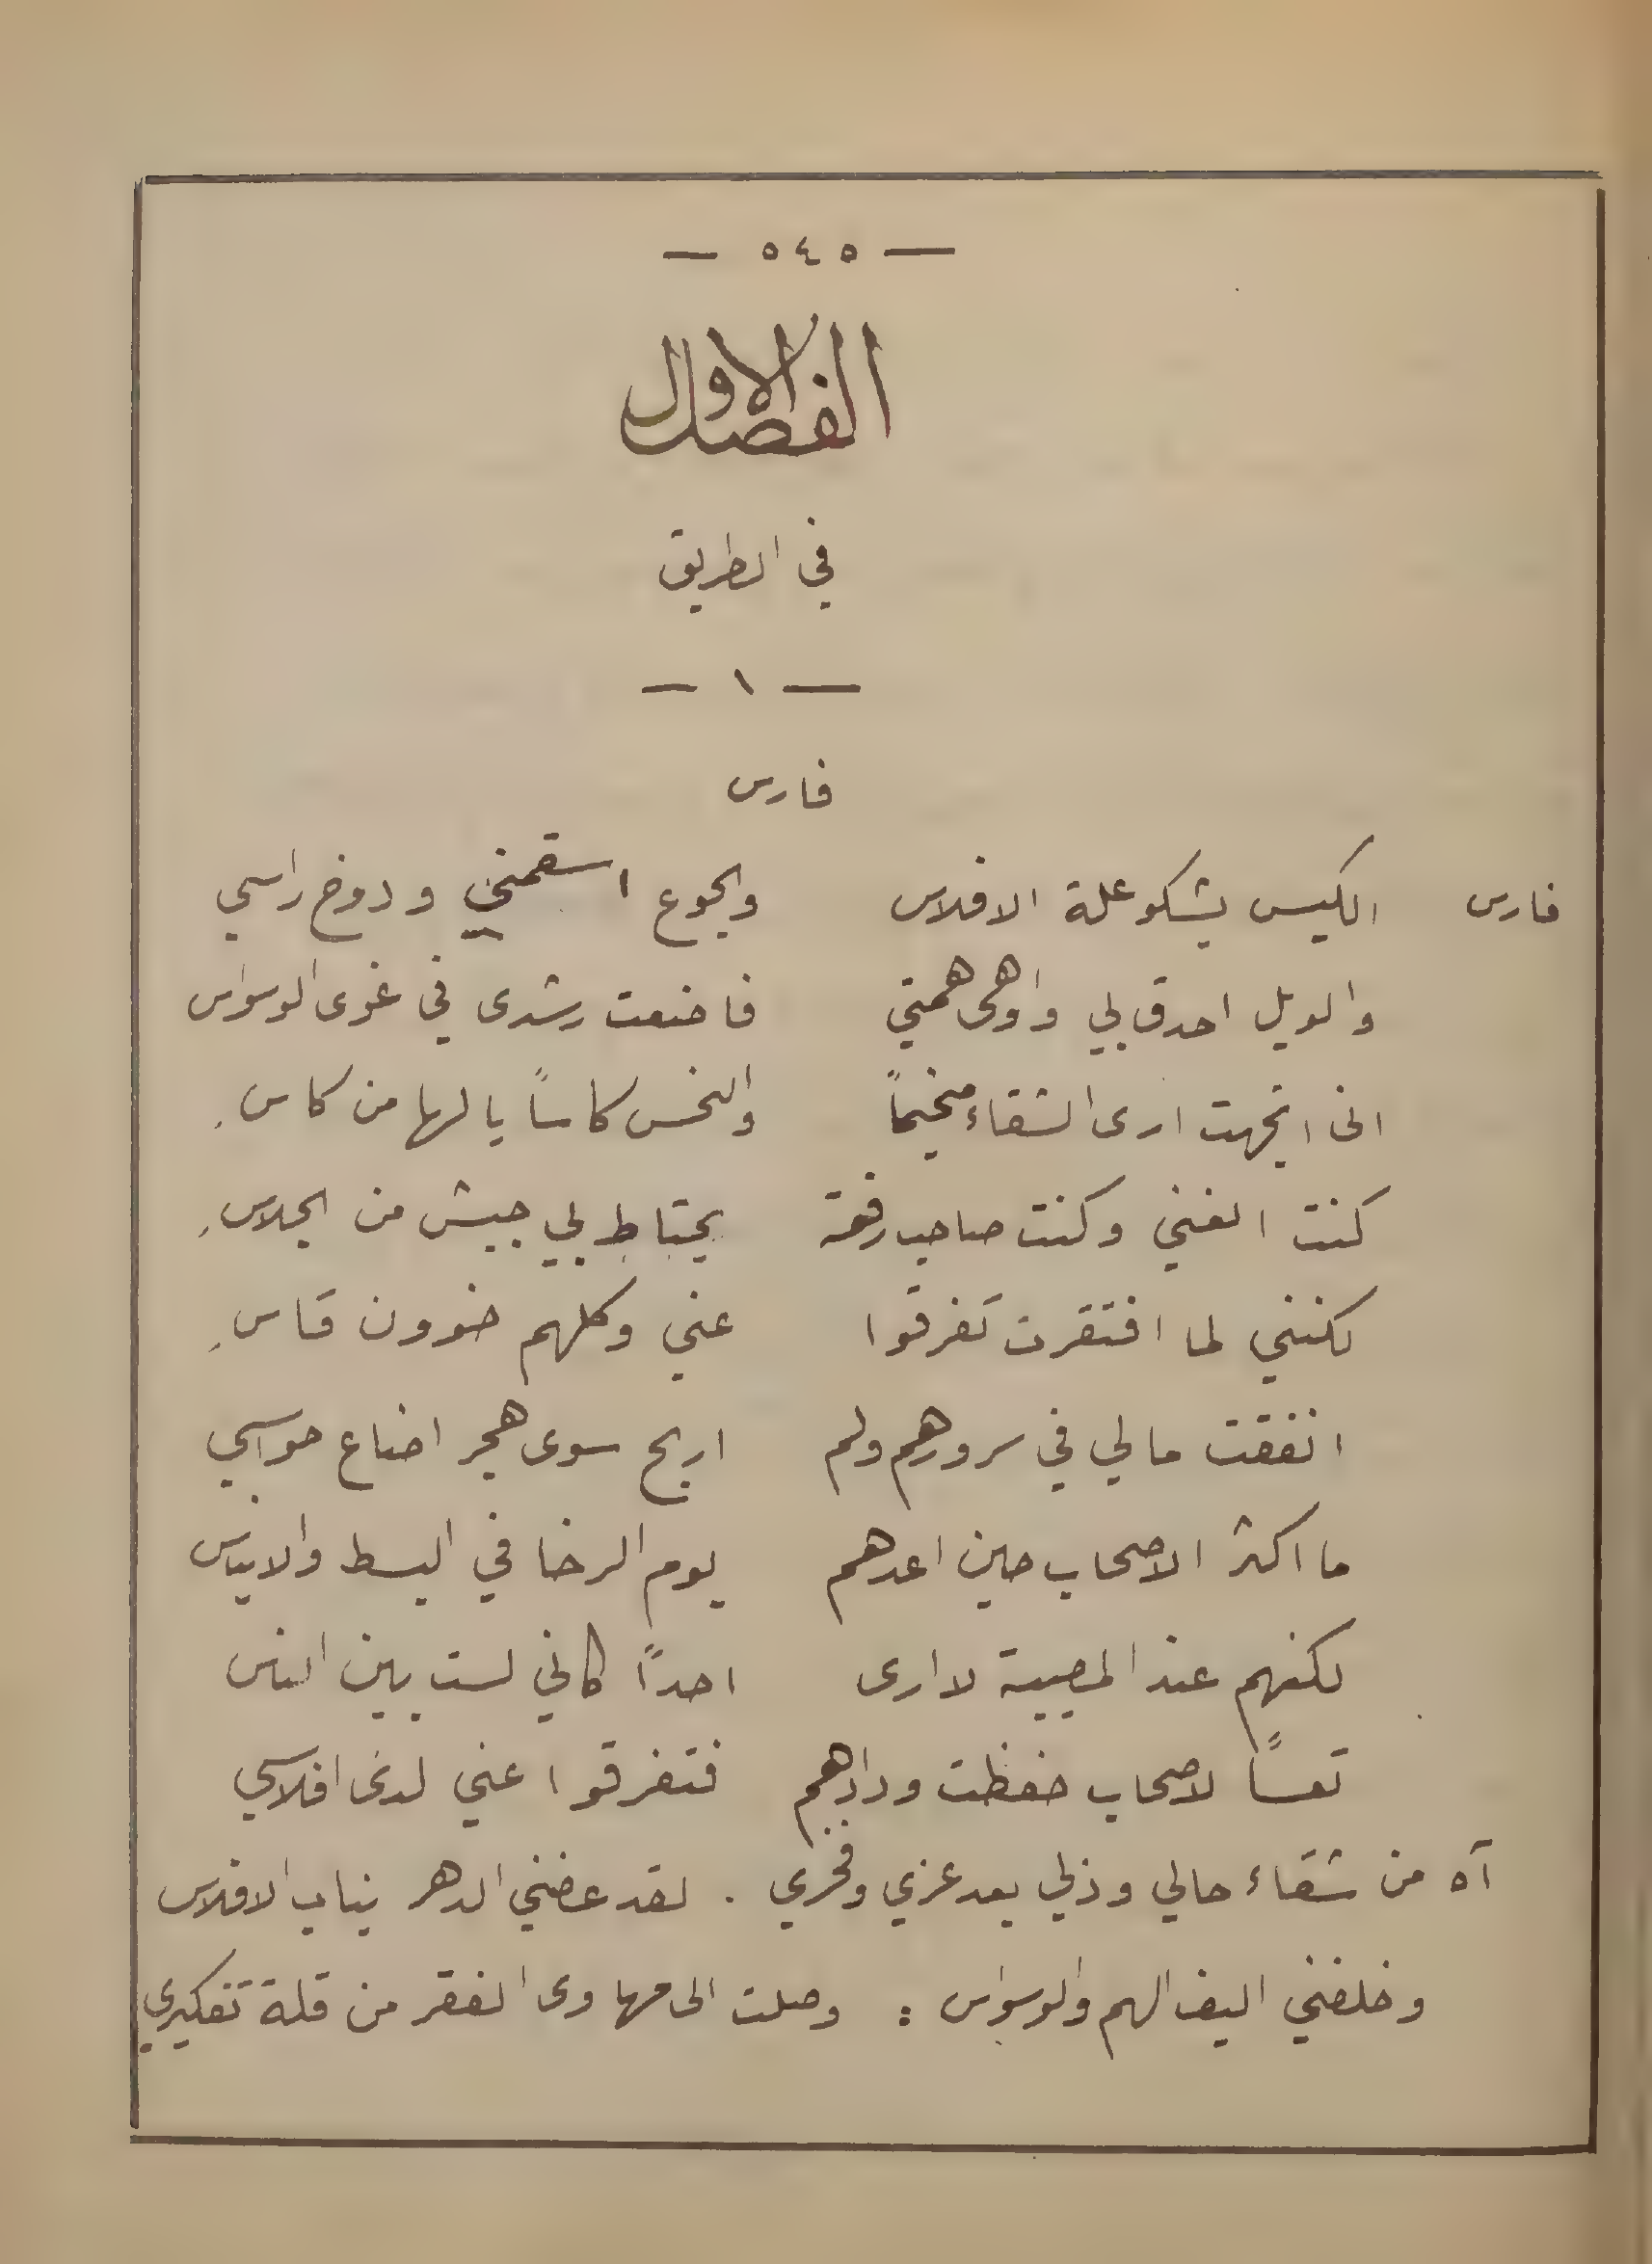 — ٥٤٥ —
الفصل الاول
في الطريق
— ١ —
فارس
فارس الكيس يشكو علة الافلاس والجوع اسقمني ودوخ راسي
والويل احدق بي واوهى همتي فاضعت رشدى في غوى الوسواس
انى اتجهت ارى الشقاء مخيماً والنحس كاساً يا لها من كاسِ
كنت الغني وكنت صاحب رفعة يحتاط بي جيش من الجلاسِ
لكنني لما افتقرت تفرقوا عني وكلهم خوون قاسِ
انفقت مالي في سرورهم ولم اربح سوى هجر اضاع حواسي
ما اكثر الاصحاب حين اعدهم يوم الرخا في البسط والايناس
لكنهم عند المصيبة لا ارى احداً كاني لست بين الناس
تعساً لاصحاب حفظت ودادهم فتفرقوا عني لدى افلاسي
آه من شقاء حالي وذلي بعد عزي وفخري . لقد عضني الدهر بناب الافلاس
وخلفني اليف الهم والوسواس : وصلت الى مهاوى الفقر من قلة تفكيري